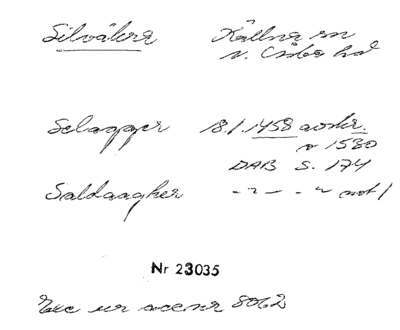 Silvåkra Källna sn
N. Åsbo hd
Selagger 18.1.1458 avskr.
o 1530
DAB S. 174
Saldaagher -"- -"- not 1
Nr 23035
Exc ur acc nr 8062